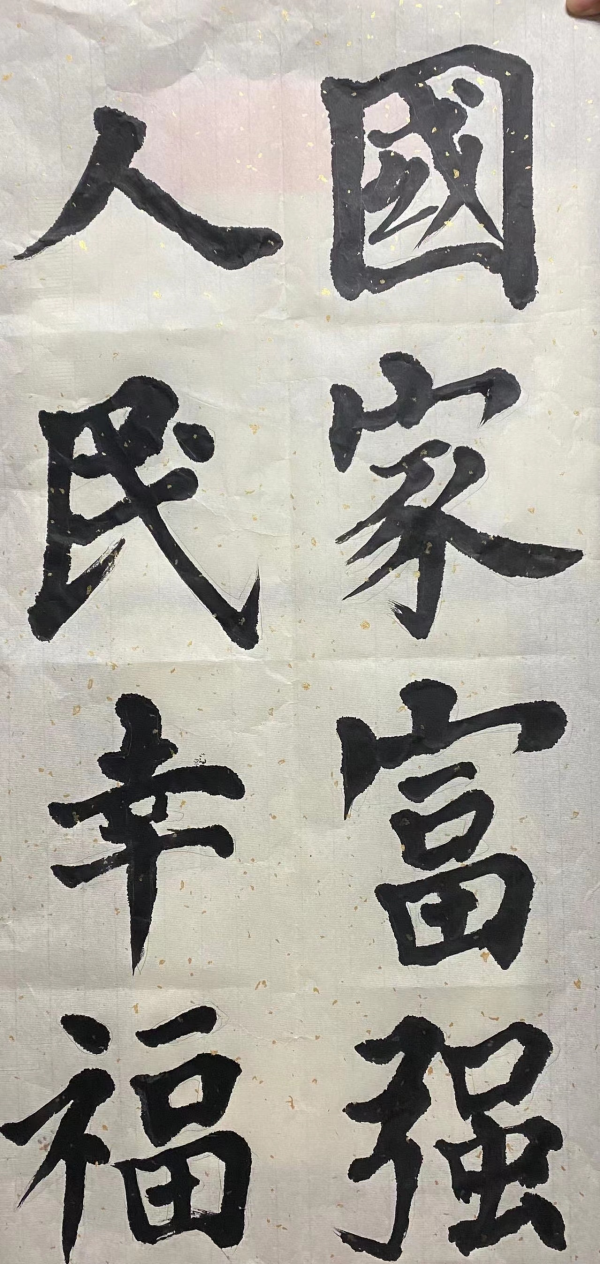 國家富强
人民幸福